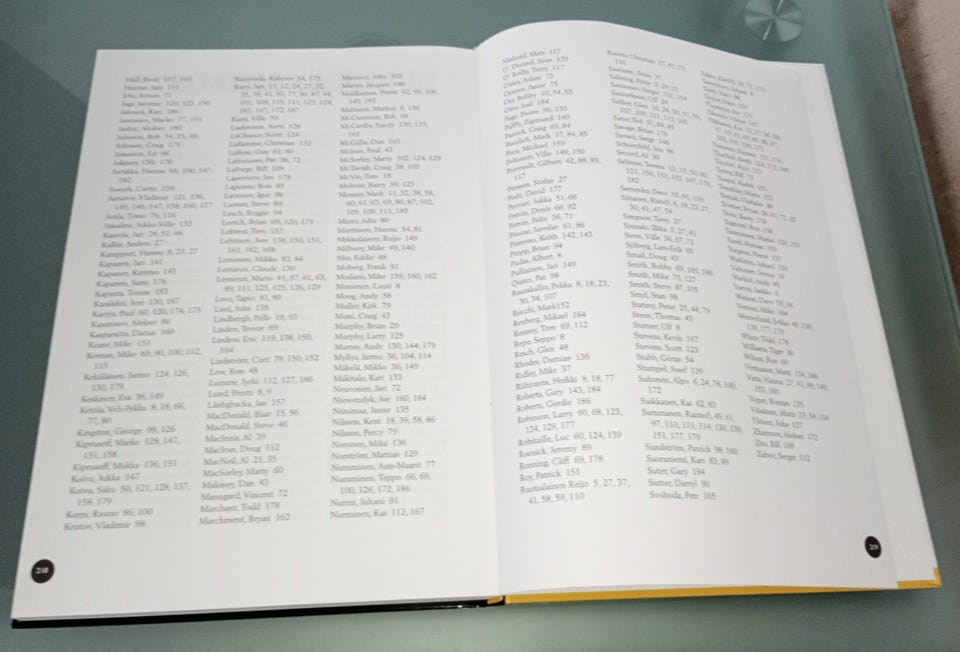 Hull, Brett 157, 160
Hurme, Jani 151
Irbe, Arturs 73
Jagr, Jaromir 120, 123, 150
Jalonen, Kari 186
Janhunen, Marko 77, 151
Johnson, Craig 179
Johnston, Ed 96
Jokinen, Olli 176
Jortikka, Hannu 66, 100, 147,
182
Joseph, Curtis 159
Jursinov, Vladimir 121, 136,
145, 146, 147, 158, 160, 177
Jutila, Timo 76, 116
Jääsalmi, Jukka-Veikko 135
Kaarela, Jari 28, 51, 66
Kallur, Anders 27
Kamppuri, Hannu 8, 23, 27
Kapanen, Jari 141
Kapanen, Kimmo 141
Kapanen, Sami 176
Kapusta, Tomas 183
Karalahti, Jere 130, 167
Kariya, Paul 60, 120, 174, 175
Kasatonov, Aleksei 86
Kasparaitis, Darius 160
Keane, Mike 151
Keenan, Mike 69, 90, 100, 112,
115
Kekäläinen, Jarmo 124, 126,
130, 179
Keskinen, Esa 36, 149
Ketola, Veli-Pekka 8, 18, 66,
77, 80
Kingston, George 98, 126
Kiprusoff, Marko 128, 147,
151, 158
Kiprusoff, Miikka 136, 151
Koivu, Jukka 147
Koivu, Saku 50, 121, 128, 137,
158, 179
Korpi, Rauno 86, 100
Krutov, Vladimir 98
Kummola, Kalervo 54, 175
Kurri, Jari 11, 12, 24, 27, 32,
161, 167, 172, 167
Kurri, Ville 53
Laaksonen, Antti 126
LaChance, Scott 124
Laflamme, Christian 152
Lafleur, Guy 61, 80
Lafontaine, Pat 36, 72
LaForge, Bill 109
Laperriere, Jan 179
Lapointe, Ron 45
Larionov, Igor 98
Larmer, Steve 89
Leach, Reggie 94
Leetch, Brian 69, 120, 175
Lehterä, Tero 157
Lehtinen, Jere 138, 150, 151,
161, 162, 168
Leinonen, Mikko 83, 84
Lemieux, Claude 130
Lemieux, Mario 41, 57, 61, 63,
89, 111, 123, 125, 126, 129
Levo, Tapio 51, 80
Lind, Juha 138
Lindbergh, Pelle 19, 93
Linden, Trevor 69
Lindros, Eric 119, 138, 150,
164
Lindström, Curt 79, 150, 152
Low, Ron 48
Lumme, Jyrki 112, 127, 186
Lund, Pentti 8, 9
Länhghacka, Jan 157
MacDonald, Blair 15, 56
MacDonald, Steve 46
MacInnis, Al 39
Maclean, Doug 112
MacNeil, Al 21, 35
MacSorley, Marty 60
Maloney, Dan 43
Manngard, Vincent 72
Marchant, Todd 178
Marchment, Bryan 162
Marttinen, Juha 103
Martin, Jacques 180
Matikainen, Pentti 62, 98, 100,
149, 182
Mattsson, Markus 8, 136
McCammon, Bob 98
McCarthy, Sandy 130, 135,
161
McGillis, Dan 165
Mclean, Paul 43
McSorley, Marty 102, 124, 129
McTavish, Craig 38, 105
McVie, Tom 18
Melrose, Barry 59, 125
Messier, Mark 11, 32, 38, 58,
60, 61, 63, 69, 86, 87, 102,
105, 109, 111, 185
Mieto, Juha 80
Miettinen, Hannu 54, 81
Mikkolainen, Reijo 149
Milbury, Mike 49, 140
Mio, Eddie 48
Moberg, Frank 91
Modano, Mike 159, 160, 162
Mononen, Lauri 8
Moog, Andy 58
Muller, Kirk 79
Muni, Craig 43
Murphy, Brian 29
Murphy, Larry 125
Murray, Andy 130, 144, 179
Myllys, Jarmo 36, 104, 114
Mäkelä, Mikko 36, 149
Mäkitalo, Kari 133
Neuvonen, Jari 72
Niewendyk, Joe 160, 184
Niinimaa, Janne 135
Nilsson, Kent 18, 39, 58, 86
Nilsson, Percy 79
Noronen, Mika 136
Norström, Mattias 129
Numminen, Ann-Maarit 77
Numminen, Teppo 66, 69,
100, 126, 172, 186
Nurmi, Juhani 91
Nurminen, Kai 112, 167
218
Näslund, Mats 117
O' Donnel, Sean 129
O' Reilly, Terry 117
Oates, Adam 73
Ojanen, Janne 75
Orr, Bobby 10, 54, 63
Otto, Joel 184
Page, Pierre 98, 133
Palffy, Zigmund 140
Patrick, Craig 65, 84
Pavelich, Mark 37, 84, 85
Peca, Michael 159
Peltonen, Ville 149, 150
Perreault, Gilbert 42, 88, 89,
117
Persson, Stefan 27
Poile, David 177
Porvari, Jukka 51, 66
Potvin, Denis 66, 92
Potvin, Felix 36, 71
Pouzar, Jaroslav 61, 86
Primeau, Keith 142, 143
Propp, Brian 94
Pudas, Albert 8
Pulliainen, Jari 149
Quinn, Pat 98
Rautakallio, Pekka 8, 18, 23,
30, 34, 107
Recchi, Mark152
Renberg, Mikael 164
Renney, Tom 69, 112
Repo, Seppo 8
Resch, Glen 48
Rhodes, Damian 136
Ridley, Mike 37
Riihiranta, Heikki 8, 18, 77
Roberts, Gary 143, 184
Roberts, Gordie 186
Robinson, Larry 60, 68, 123,
124, 129, 177
Robitaille, Luc 60, 124, 139
Roenick, Jeremy 89
Ronning, Cliff 69, 178
Roy, Patrick 151
Ruotsalainen Reijo 5, 27, 37,
41, 58, 59, 110
Ruuttu Christian 37, 41, 73,
110
Saarinen, Simo 37
Salming, Börje 9, 20, 23
Samuelsson, Ulf 24
Sather, Glen 16, 24, 56, 57, 59,
107, 109, 111, 113, 165
Sator, Ted 37, 84, 85
Savage, Brian 178
Savard, Serge 146
Schoenfeld, Jim 86
Secord, Al 30
Selänne, Teemu 12, 13, 50, 60,
121, 150, 151, 155, 167, 179,
182
Semenko, Dave 55, 61, 110
Siltanen, Risto 5, 8, 18, 23, 27,
30, 41, 47, 54
Simpson, Terry 37
Sinisalo, Ilkka 5, 27, 41
Siren, Ville 36, 67, 72
Sjöberg, Lars-Erik 65
Smail, Doug 43
Smith, Bobby 69, 185, 186
Smith, Mike 75, 127
Smith, Steve 87, 105
Smyl, Stan 98
Stastny, Peter 25, 44, 79
Steen, Thomas 43
Sterner, Ulf 8
Stevens, Kevin 167
Stevens, Scott 123
Stubb, Göran 54
Stumpel, Josef 139
Suhonen, Alpo 6, 24, 78, 100,
172
Suikkanen, Kai 62, 83
Summanen, Raimo 5, 49, 61,
97, 110, 111, 114, 130, 139,
151, 177, 179
Sundström, Patrick 98, 160
Suoraniemi, Kari 83, 99
Suter, Gary 184
Sutter, Darryl 90
Svoboda, Petr 165
Tikkanen, Esa 12, 27, 36, 50,
White, Todd 178
Williams, Tiger 30
Wilson, Ron 60
Virta, Hannu 27, 41, 99, 149,
153, 160
Vopat, Roman 135
Väisänen, Matti 13, 54, 134
Ylönen, Juha 127
Zhamnov, Aleksei 172
Zito, Bill 169
Zubov, Sergei 112
219